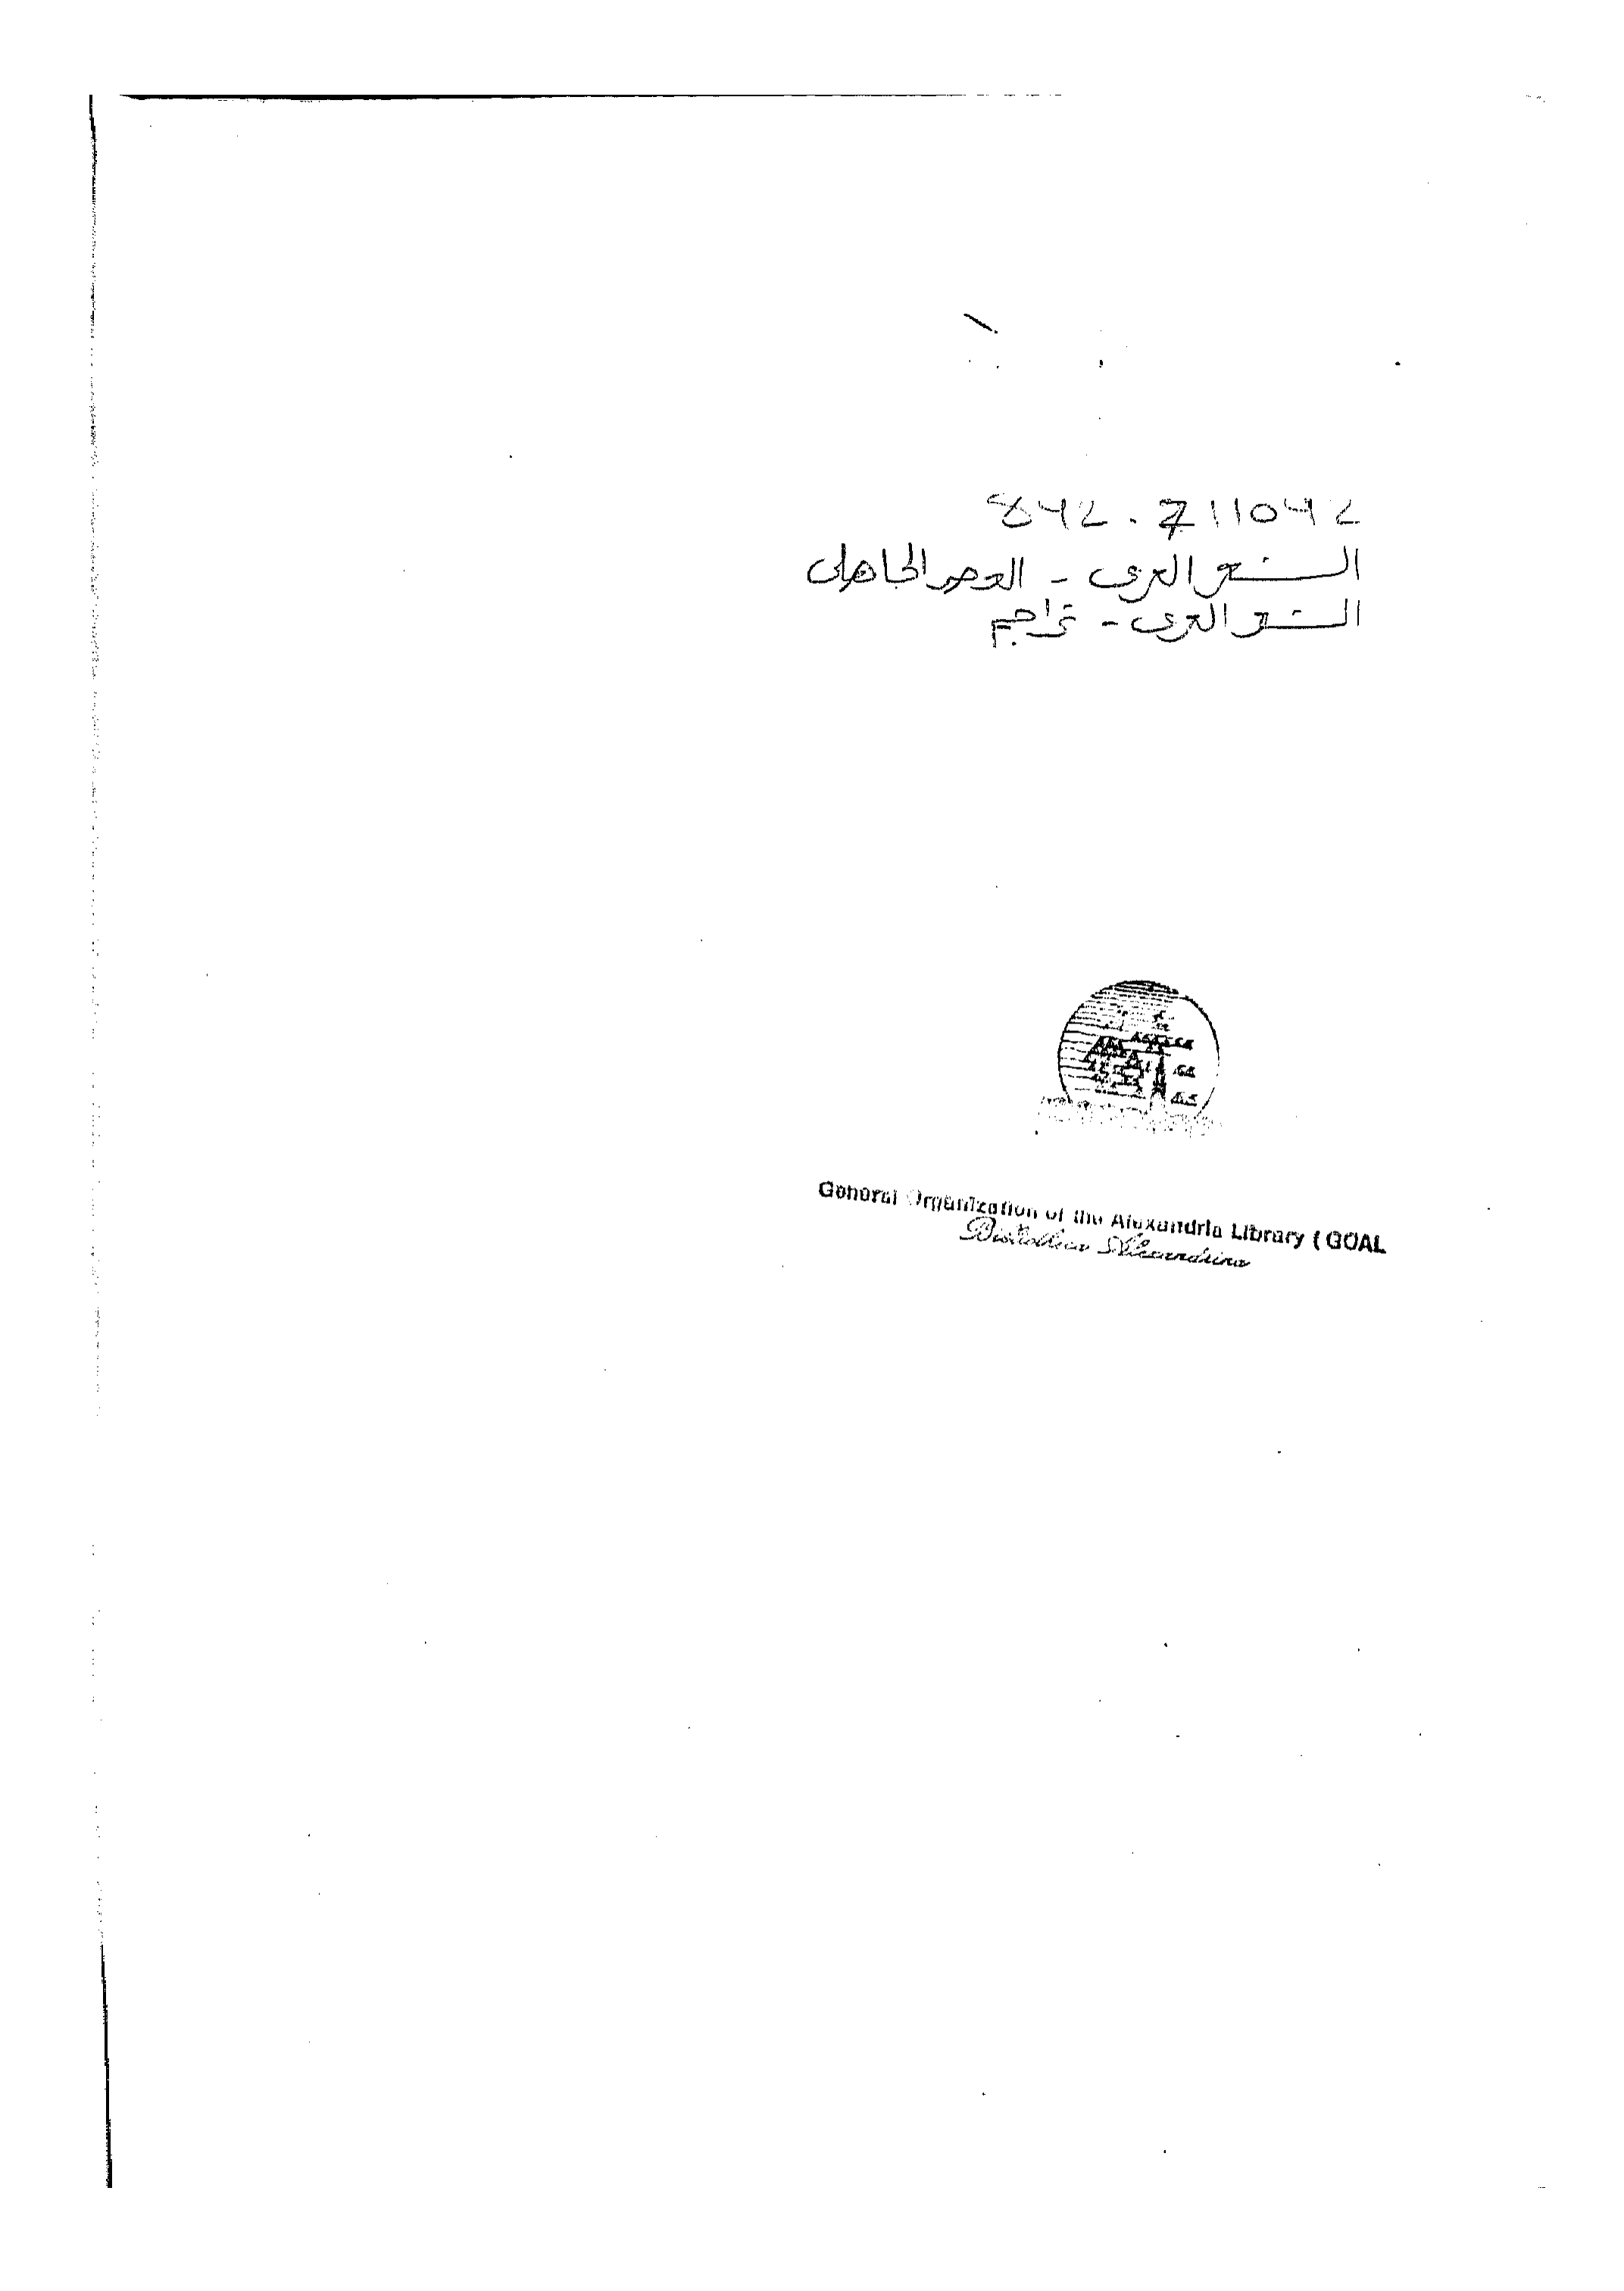 842.711042
الشعر العربى - العصر الجاهلى
الشعر العربى - تراجم
General Organization of the Alexandria Library (GOAL
Bibliotheca Alexandrina